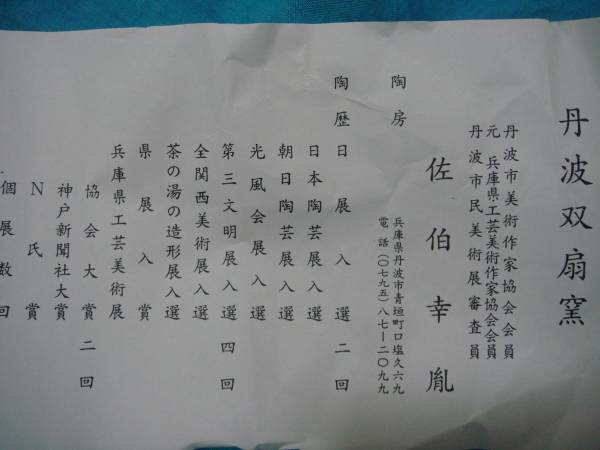 丹波双扇窯
丹波市美術作家協会会員
元 兵庫県工芸美術作家協会会員
丹波市民美術展審査員
佐伯幸胤
陶房
兵庫県丹波市青垣町口塩久六九
電話(〇七九五)八七―二〇九九
陶歴
日展入選二回
日本陶芸展入選
朝日陶芸展入選
光風会展入選
第三文明展入選四回
全関西美術展入選
茶の湯の造形展入選
県展入賞
兵庫県工芸美術展
協会大賞二回
神戸新聞社大賞
N氏賞
個展数回